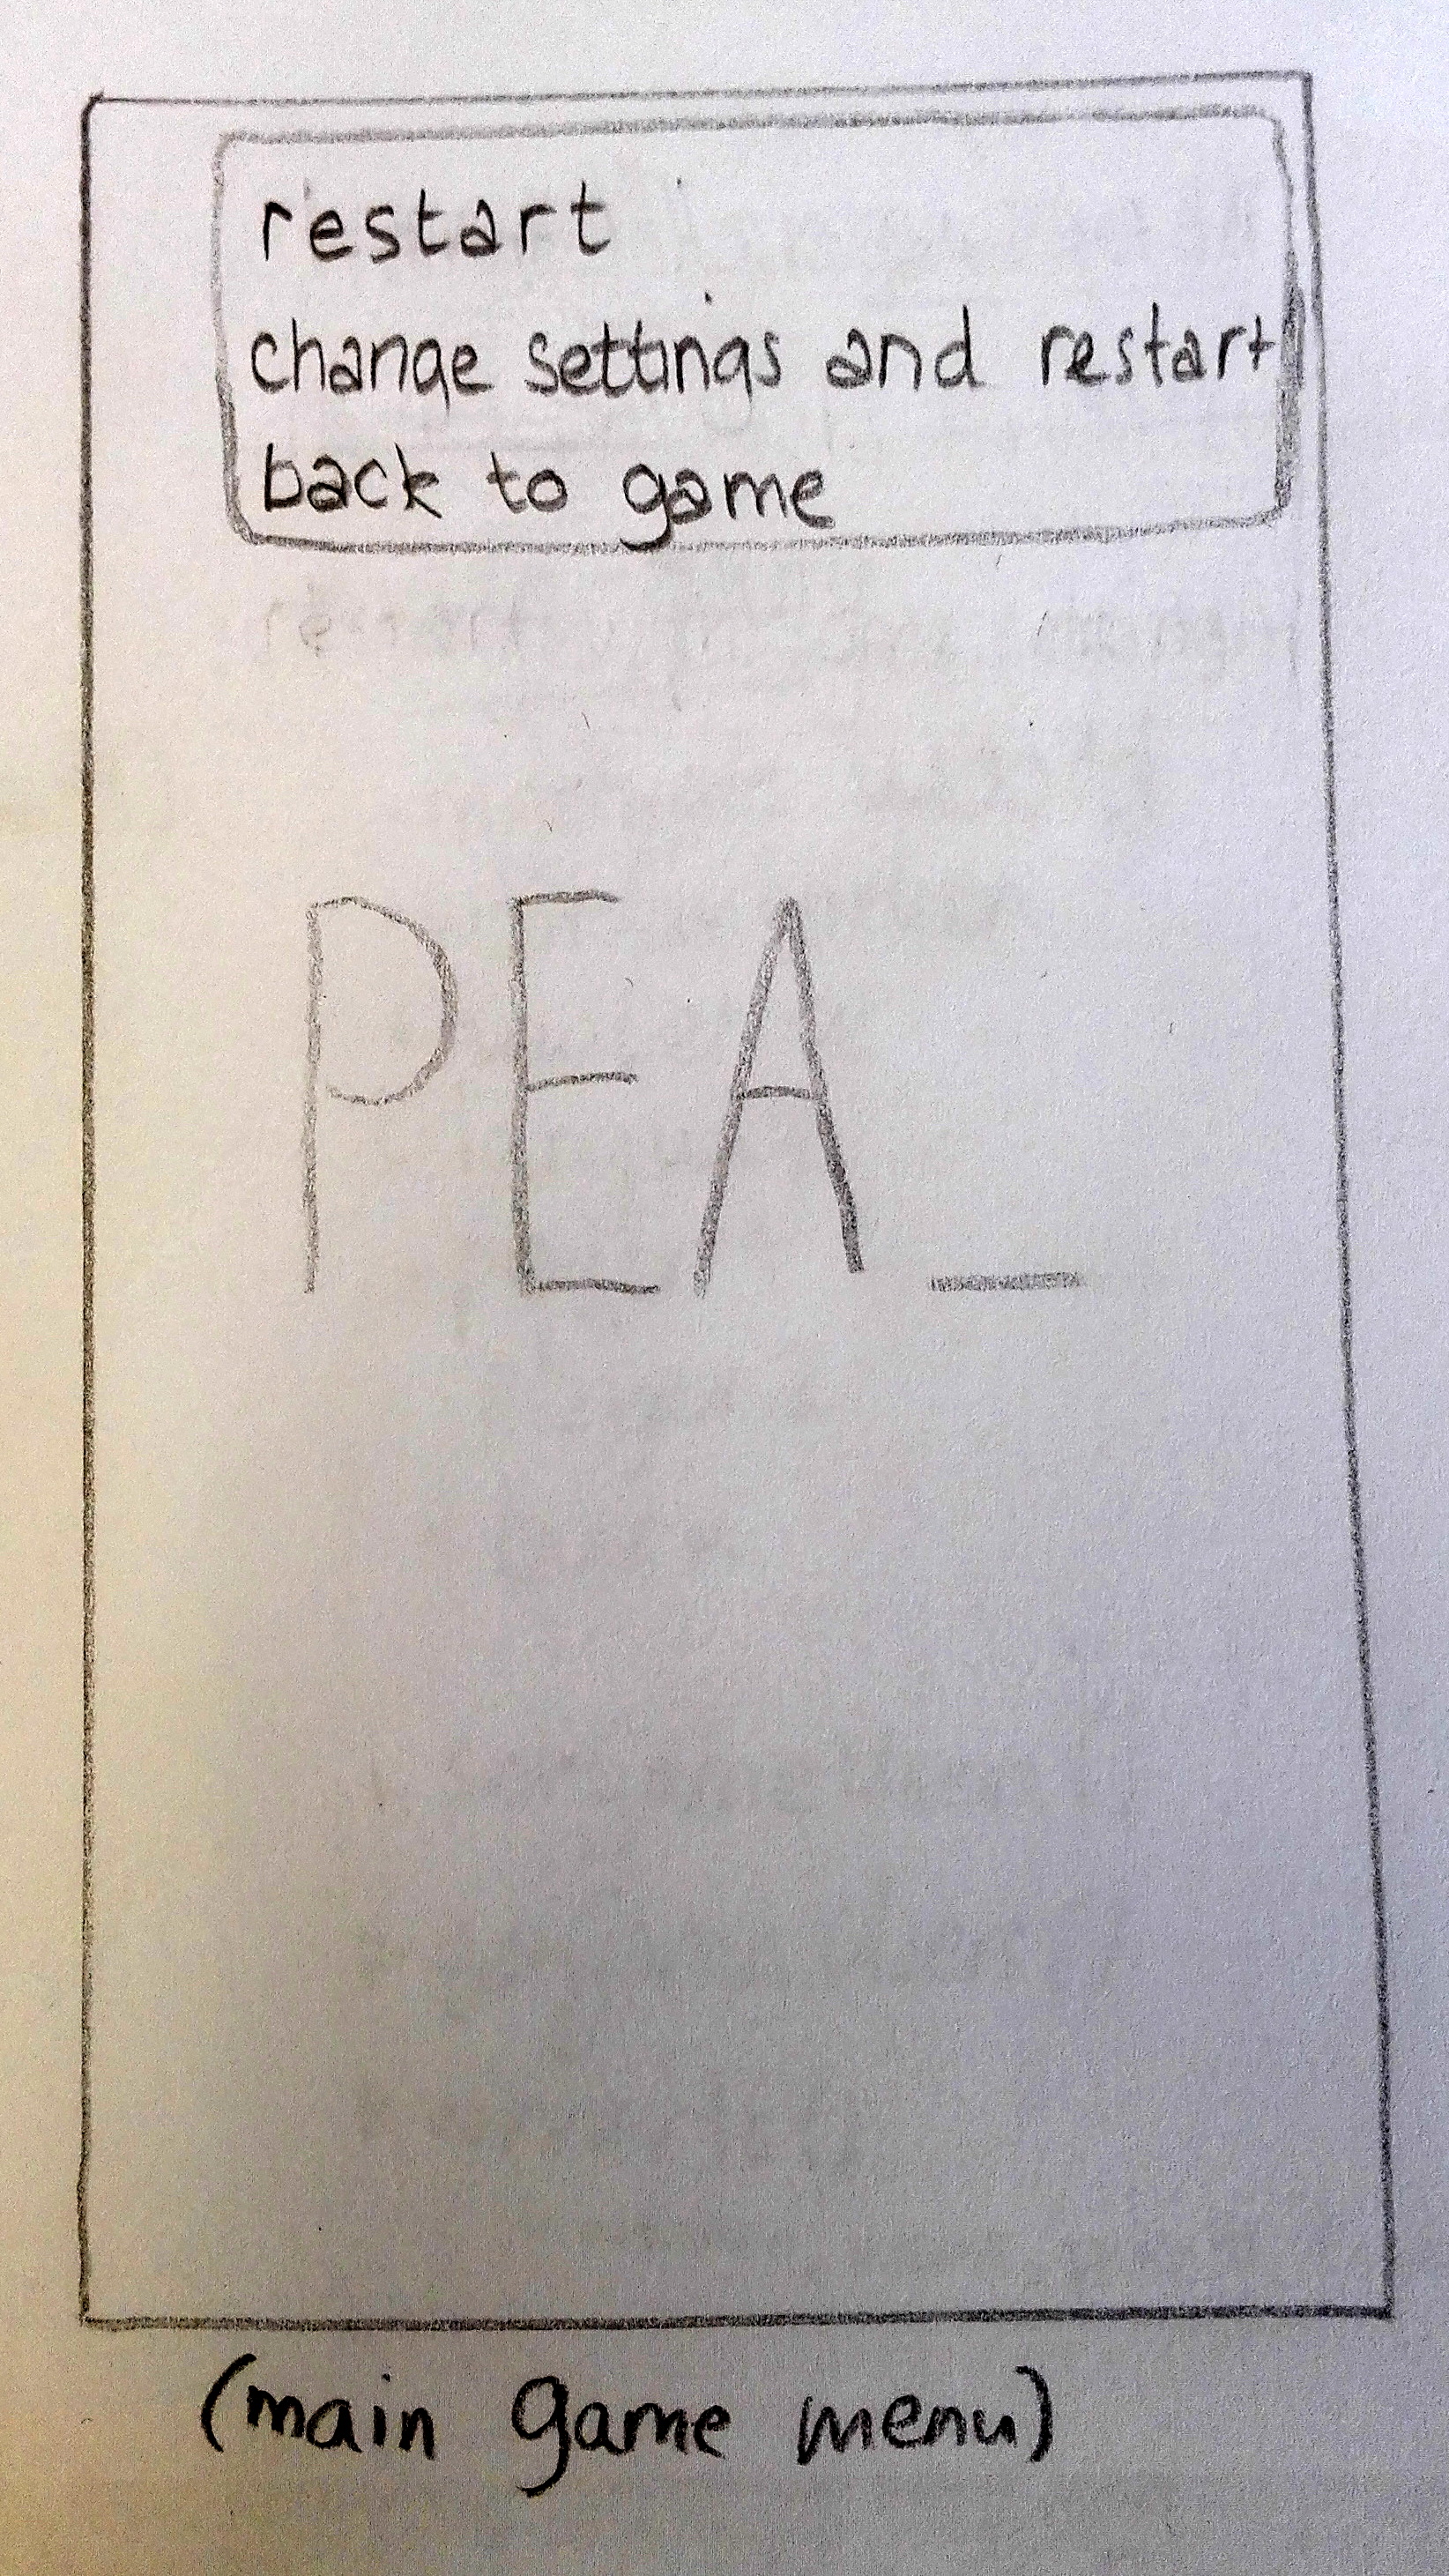 restart
change settings and restart
back to game
PEA_
(main game menu)